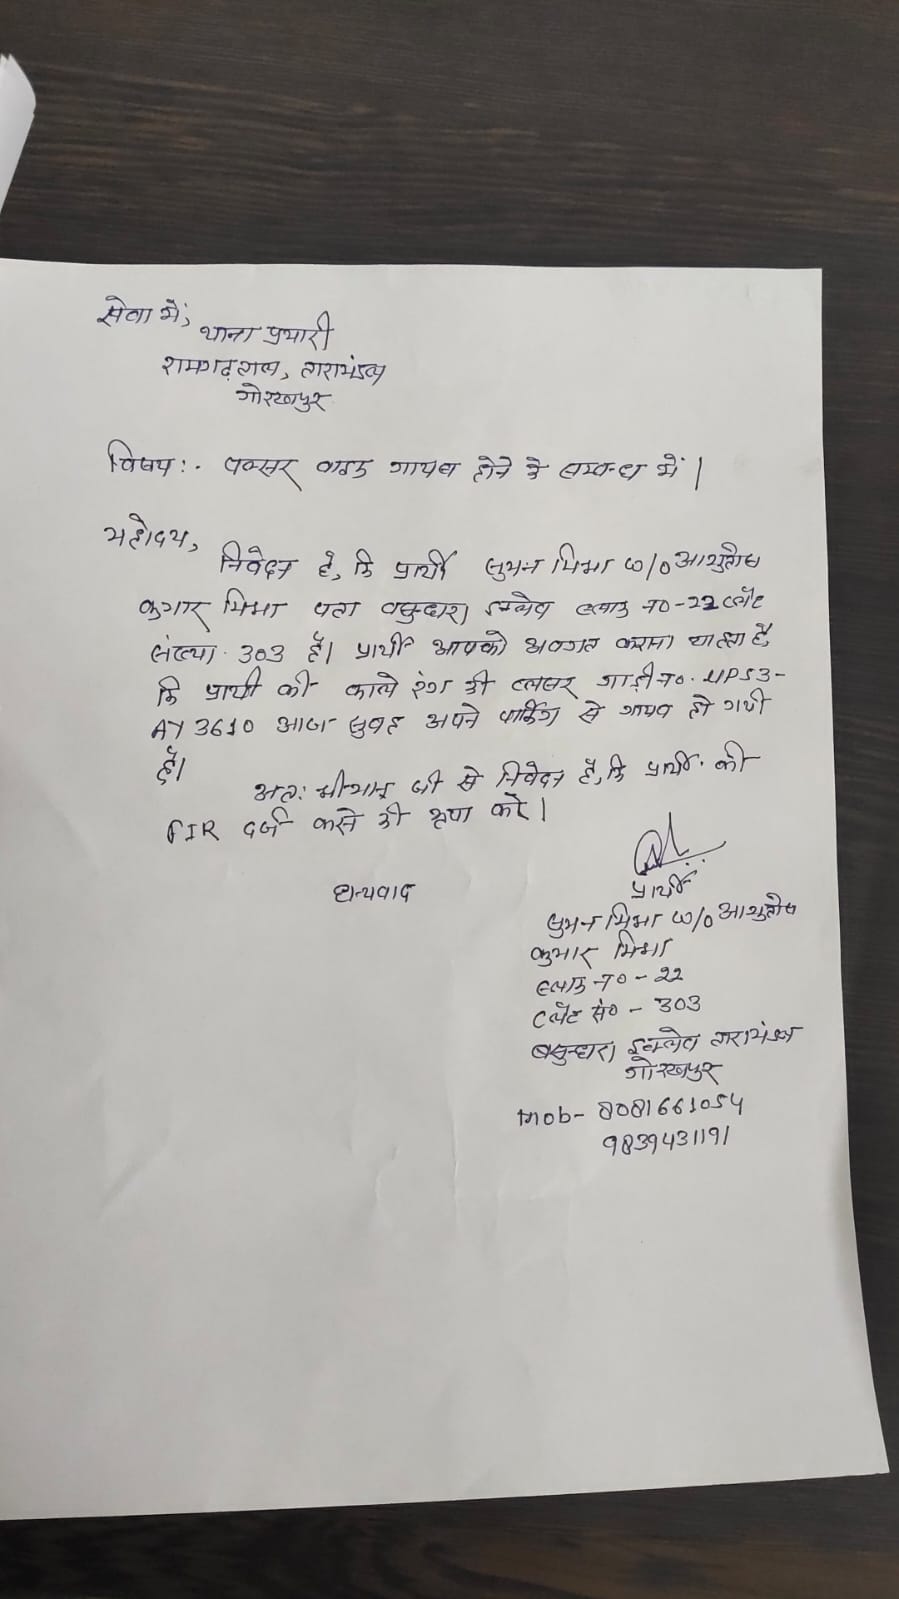 सेवा में,
थाना प्रभारी
रामगढ़ताल, तारामंडल
गोरखपुर
विषय:- पल्सर बाइक गायब होने के सम्बन्ध में।
महोदय,
निवेदन है, कि प्रार्थी सुमन मिश्रा w/o आशुतोष
कुमार मिश्रा पता वसुन्धरा इन्क्लेव ब्लाक न०-22 फ्लैट
संख्या 303 है। प्रार्थी आपको अवगत कराना चाहता है,
कि प्रार्थी की काले रंग की पल्सर गाड़ी न०. UP53-
AY 3610 आज सुबह अपने पार्किंग से गायब हो गयी
है।
अतः श्रीमान् जी से निवेदन है, कि प्रार्थी की
FIR दर्ज करने की कृपा करें।
प्रार्थी
धन्यवाद
सुमन मिश्रा w/o आशुतोष
कुमार मिश्रा
ब्लाक न० - 22
फ्लैट सं० - 303
बसुन्धरा इन्क्लेव तारामंडल
गोरखपुर
Mob- 8081661054
9839431191